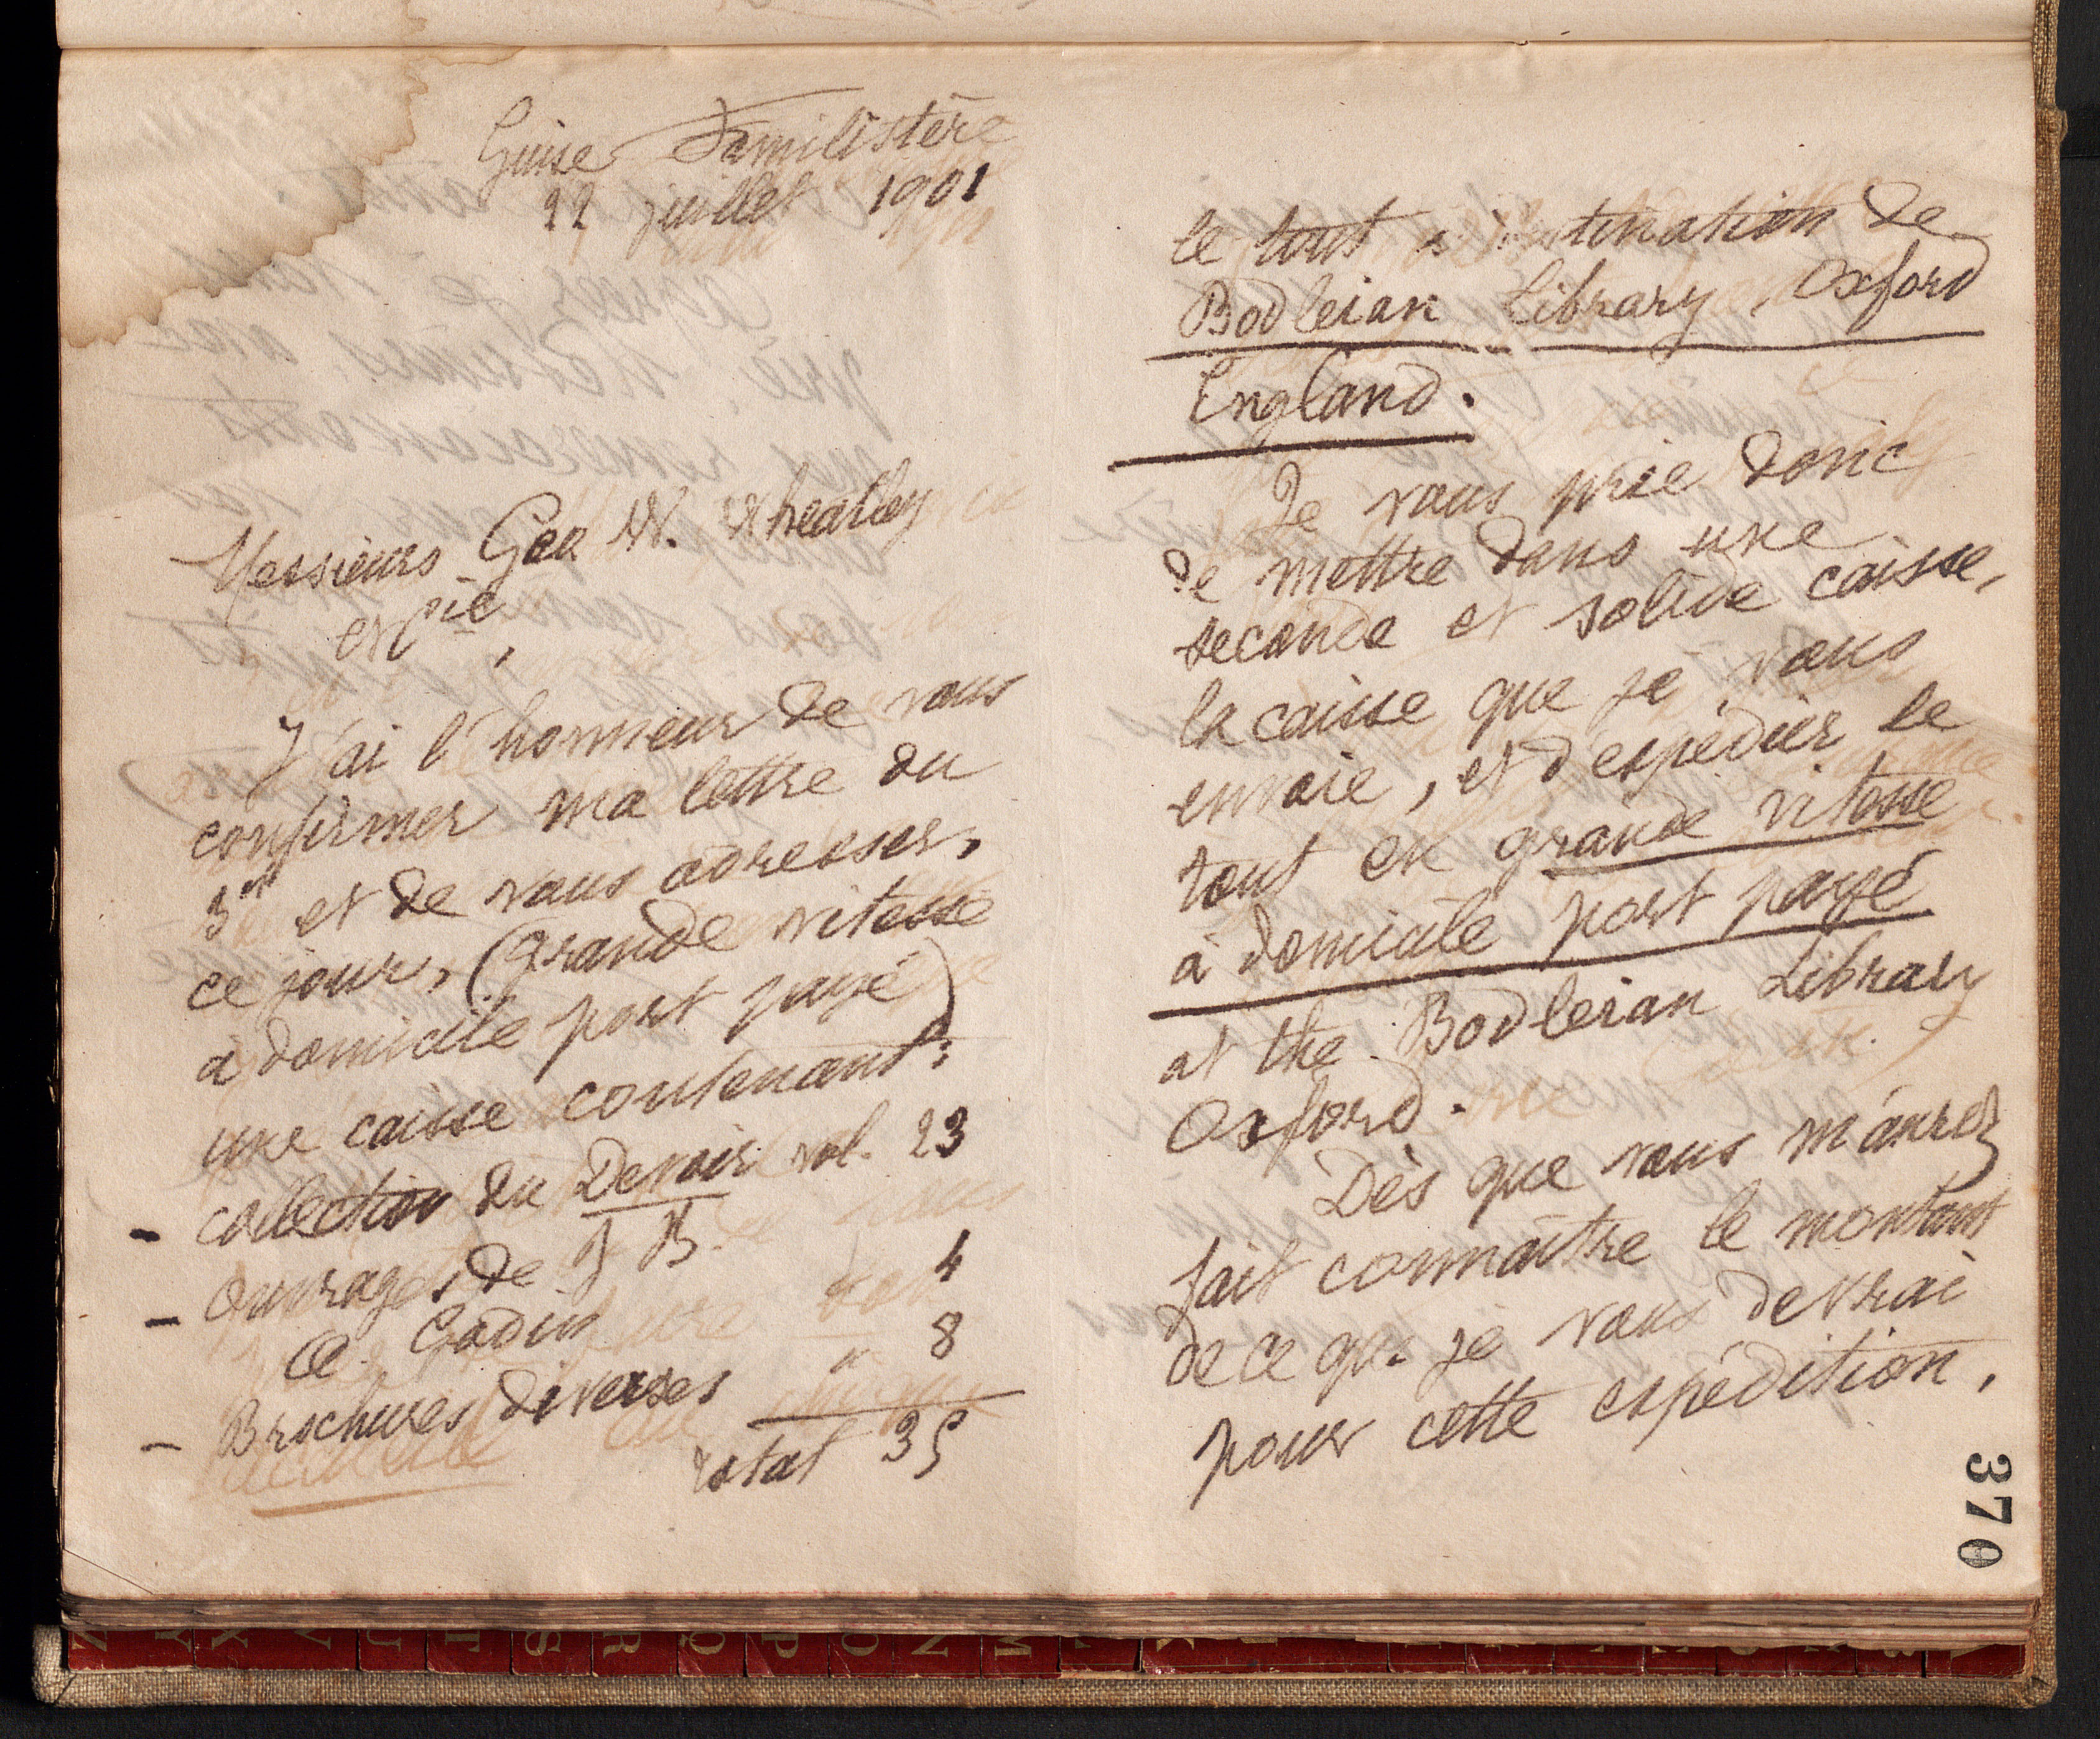 Guise Familistère
22 juillet 1901
Messieurs Geo W. Wheatley
et Cie,
J'ai l'honneur de vous
confirmer ma lettre du
3 et de vous adresser,
ce jour, (grande vitesse
à domicile port payé)
une caisse contenant :
- collection du Devoir vol. 23
- Ouvrages de J B
A. Godin 4
- Brochures diverses " 8
total 35
le tout à destination de
Bodleian Library, Oxford
England.
Je vous prie donc
de mettre dans une
seconde et solide caisse,
la caisse que je vous
envoie, et d'expédier le
tout en grande vitesse
à domicile port payé
at the Bodleian Library
Oxford.
Dès que vous m'aurez
fait connaître le montant
de ce que je vous devrai
pour cette expédition,
370
Z Y X V U T S R Q P O N M L K